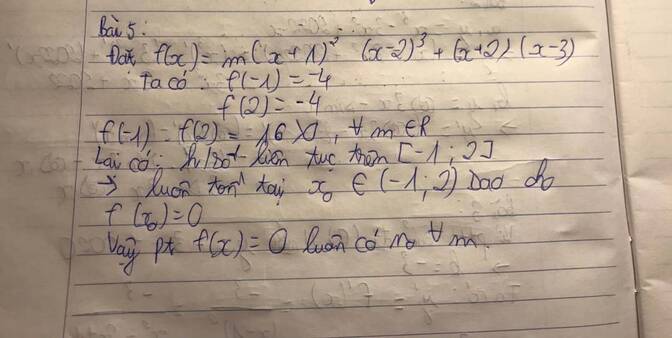 Bài 5:
Đặt f(x) = m(x+1)² (x-2)³ + (x+2)(x-3)
Ta có: f(-1) = -4
f(2) = -4
f(-1) . f(2) = -16 , ∀ m ∈ R
Lại có: h/số liên tục trên [-1; 2]
→ luôn tồn tại x₀ ∈ (-1; 2) sao cho
f(x₀) = 0
Vậy pt f(x) = 0 luôn có n₀ ∀ m.